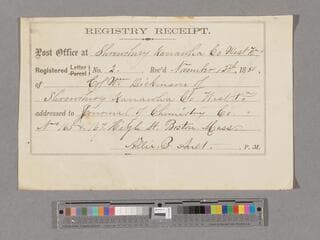 REGISTRY RECEIPT.
Post Office at Shrewsbury Kanawha Co West Va
Registered Letter Parcel No. 2. Rec'd November 13th, 18
of Col Wm Dickinson of
Shrewsbury Kanawha Co West Va
addressed to Journal of Chemistry Co
No 165 & 67 High St. Boston Mass
P. M.